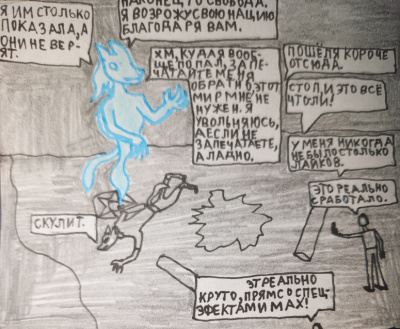 Я ИМ СТОЛЬКО
ПОКАЗАЛА, А
ОНИ НЕ ВЕР-
ЯТ.
НАКОНЕЦ, ТО СВОБОДА.
Я ВОЗРОЖУ СВОЮ НАЦИЮ
БЛАГОДАРЯ ВАМ.
ХМ, КУДА Я ВООБ-
ЩЕ ПОПАЛ, ЗАПЕ-
ЧАТАЙТЕ МЕНЯ
ОБРАТНО ЭТОТ
МИР МНЕ НЕ
НУЖЕН. Я
УВОЛЬНЯЮСЬ,
А ЕСЛИ НЕ
ЗАПЕЧАТАЕТЕ,
А ЛАДНО.
ПОШЁЛ Я КОРОЧЕ
ОТСЮДА.
СТОП, И ЭТО ВСЁ
ЧТОЛИ!
У МЕНЯ НИКОГДА
НЕ БЫЛО СТОЛЬКО
ЛАЙКОВ.
ЭТО РЕАЛЬНО
СРАБОТАЛО.
СКУЛИТ.
ЭТРЕАЛЬНО
КРУТО, ПРЯМ С О СПЕЦ-
ЭФЕКТАМИ МАХ!